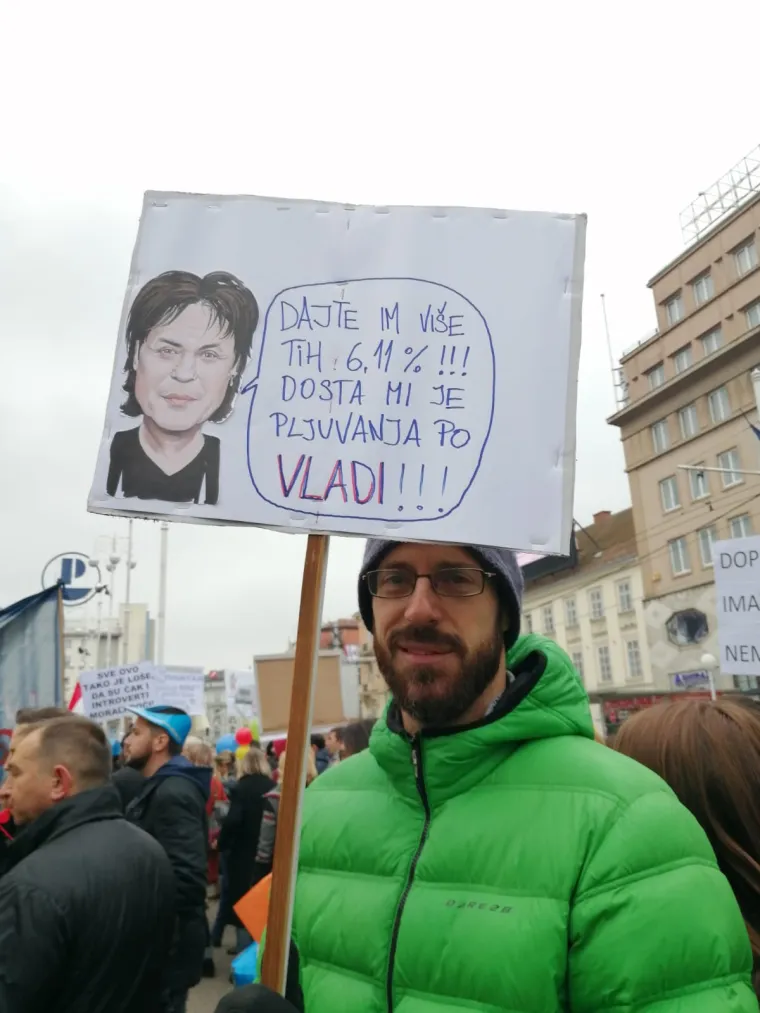 DAJTE IM VIŠE
TIH 6,11 % !!!
DOSTA MI JE
PLJUVANJA PO
VLADI!!!
SVE OVO
TAKO JE LOŠE
DA SU ČAK I
INTROVERTI
DOP
IMA
NEM